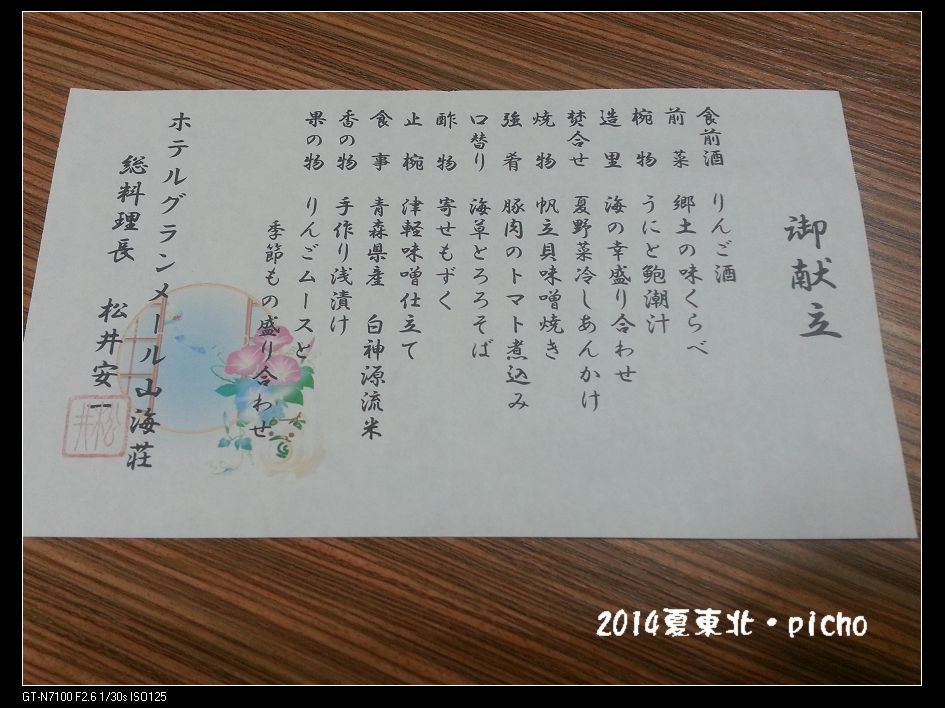 御献立
食前酒 りんご酒
前菜 郷土の味くらべ
椀物 うにと鮑潮汁
造里 海の幸盛り合わせ
焚合せ 夏野菜冷しあんかけ
焼物 帆立貝味噌焼き
強肴 豚肉のトマト煮込み
口替り 海草とろろそば
酢物 寄せもずく
止椀 津軽味噌仕立て
食事 青森県産 白神源流米
香の物 手作り浅漬け
果の物 りんごムースと
季節もの盛り合わせ
ホテルグランメール山海荘
総料理長 松井安一
松井
2014夏東北・picho
GT-N7100 F2.6 1/30s ISO125